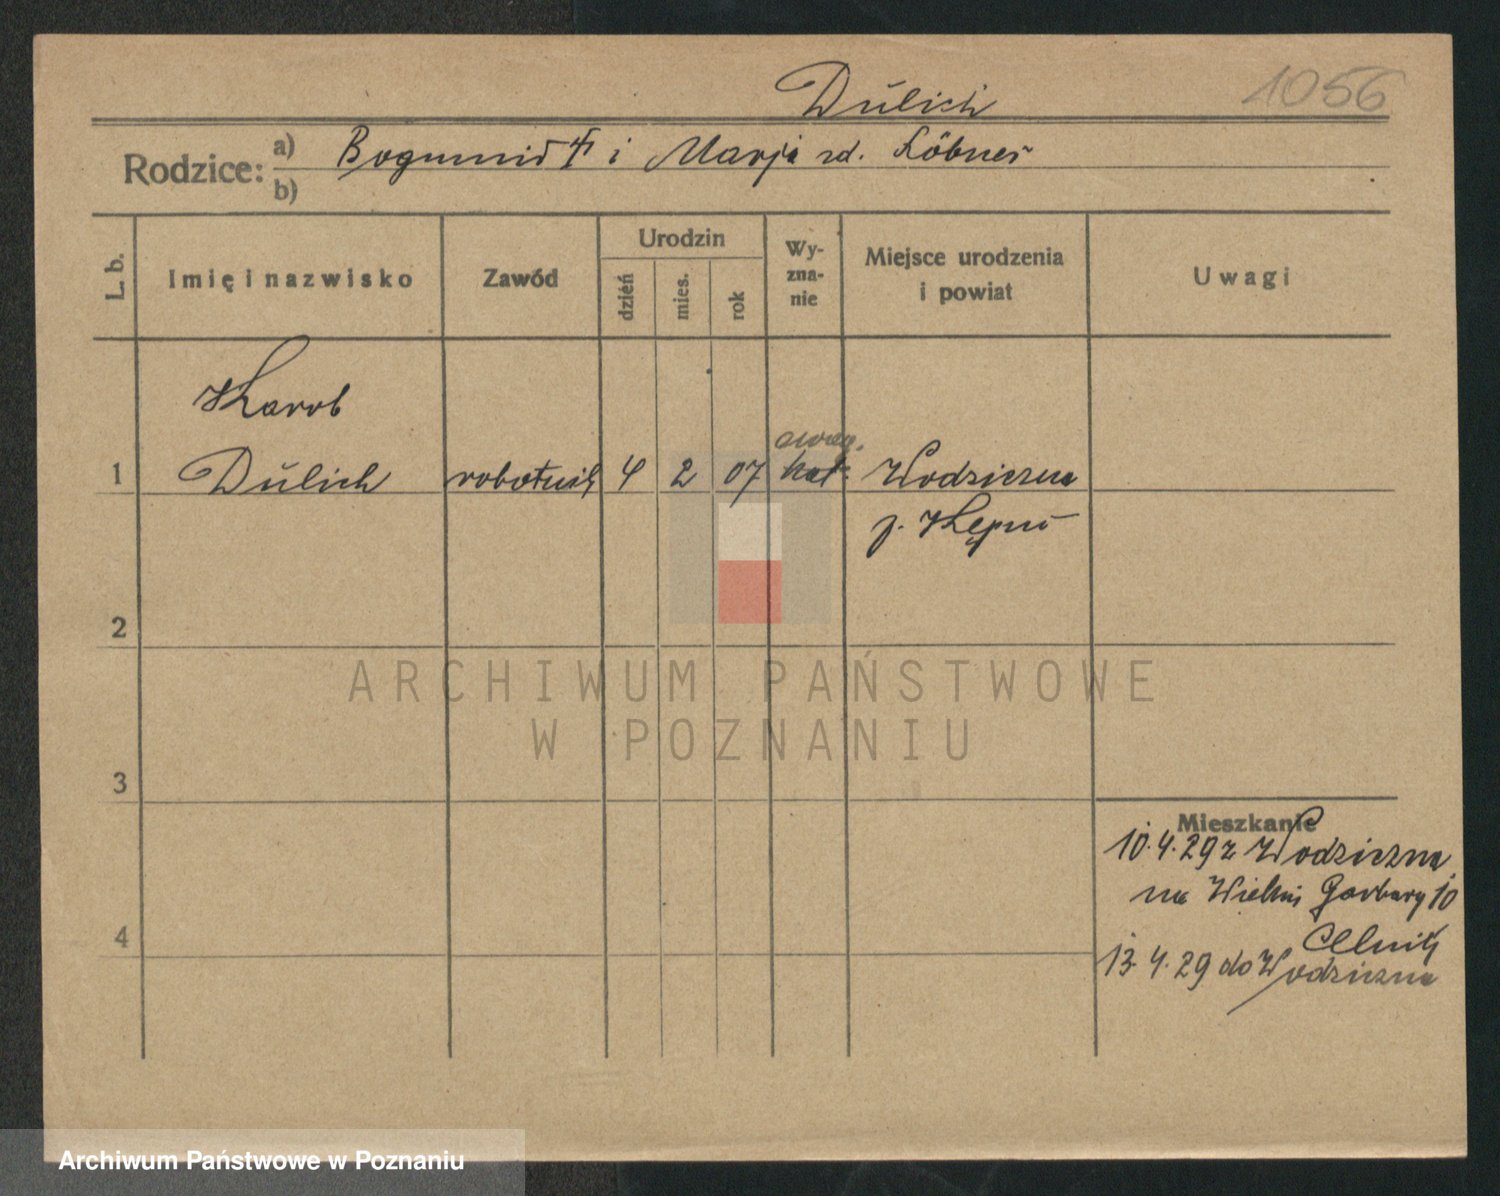 Dülich 1056
Rodzice: a) Bogumił † i Marja zd. Löbner
b)
L. b. Imię i nazwisko Zawód Urodzin dzień mies. rok Wy-zna-nie Miejsce urodzenia i powiat Uwagi
Karol
ewag.
1 Dülich robotnik 4 2 07 kat. Wodziczna
p. Kępno
2
3
4
Mieszkanie
10.4.29 z Wodziczna
na Wielkie Garbary 10
13.4.29 do Wodziczna
ARCHIWUM PAŃSTWOWE
W POZNANIU
Archiwum Państwowe w Poznaniu